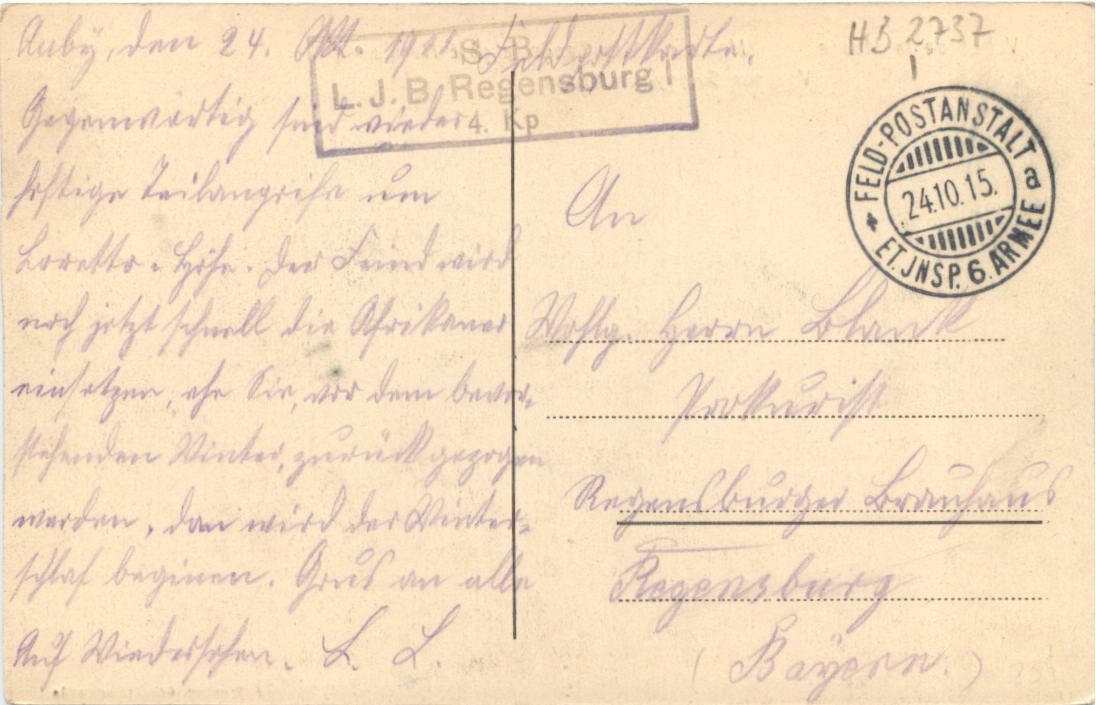 Auby, den 24. Okt. 1915. Feldpostkarte.
Gegenwärtig sind wieder
heftige Teilangriffe um
Loretto-Höhe. Der Feind wird
noch jetzt schnell die Afrikaner
einsetzen, ehe Sie, vor dem bevor-
stehenden Winter, zurückgezogen
werden, dan wird der Winter-
schlaf beginen. Grus an alle
Auf Wiedersehen. L. L.
S. B.
L. J. B. Regensburg I
4. Kp
HB 2737
I
FELD-POSTANSTALT a
24.10.15.
* ET. JNSP. 6. ARMEE
An
Wohlg. Herrn Blank
Prokurist
Regensburger Brauhaus
Regensburg
(Bayern.)